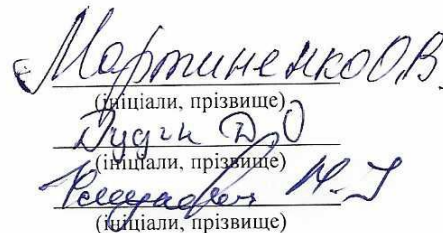 Мартиненко О.В.
(ініціали, прізвище)
Дудік Д О
(ініціали, прізвище)
М. І
(ініціали, прізвище)